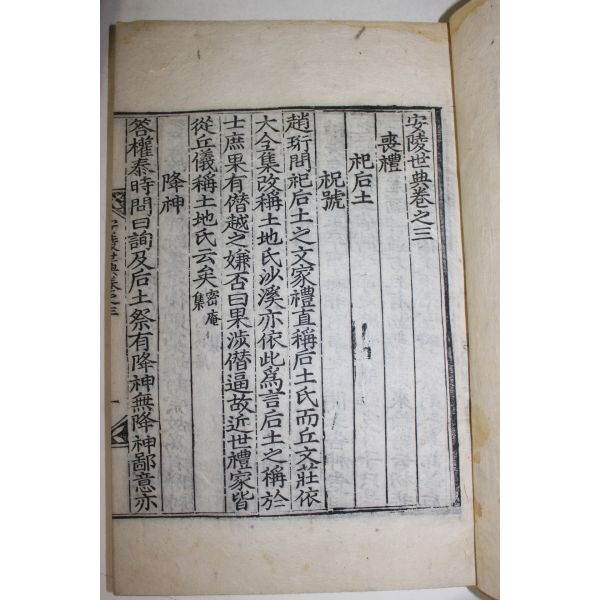 安陵世典卷之三
喪禮
祀后土
祝號
趙珩問祀后土之文家禮直稱后土氏而丘文莊依
大全集改稱土地氏沙溪亦依此爲言后土之稱於
士庶果有僭越之嫌否曰果涉僭逼故近世禮家皆
從丘儀稱土地氏云矣密庵集
降神
答權泰時問曰詢及后土祭有降神無降神鄙意亦
安陵世典卷之三 一